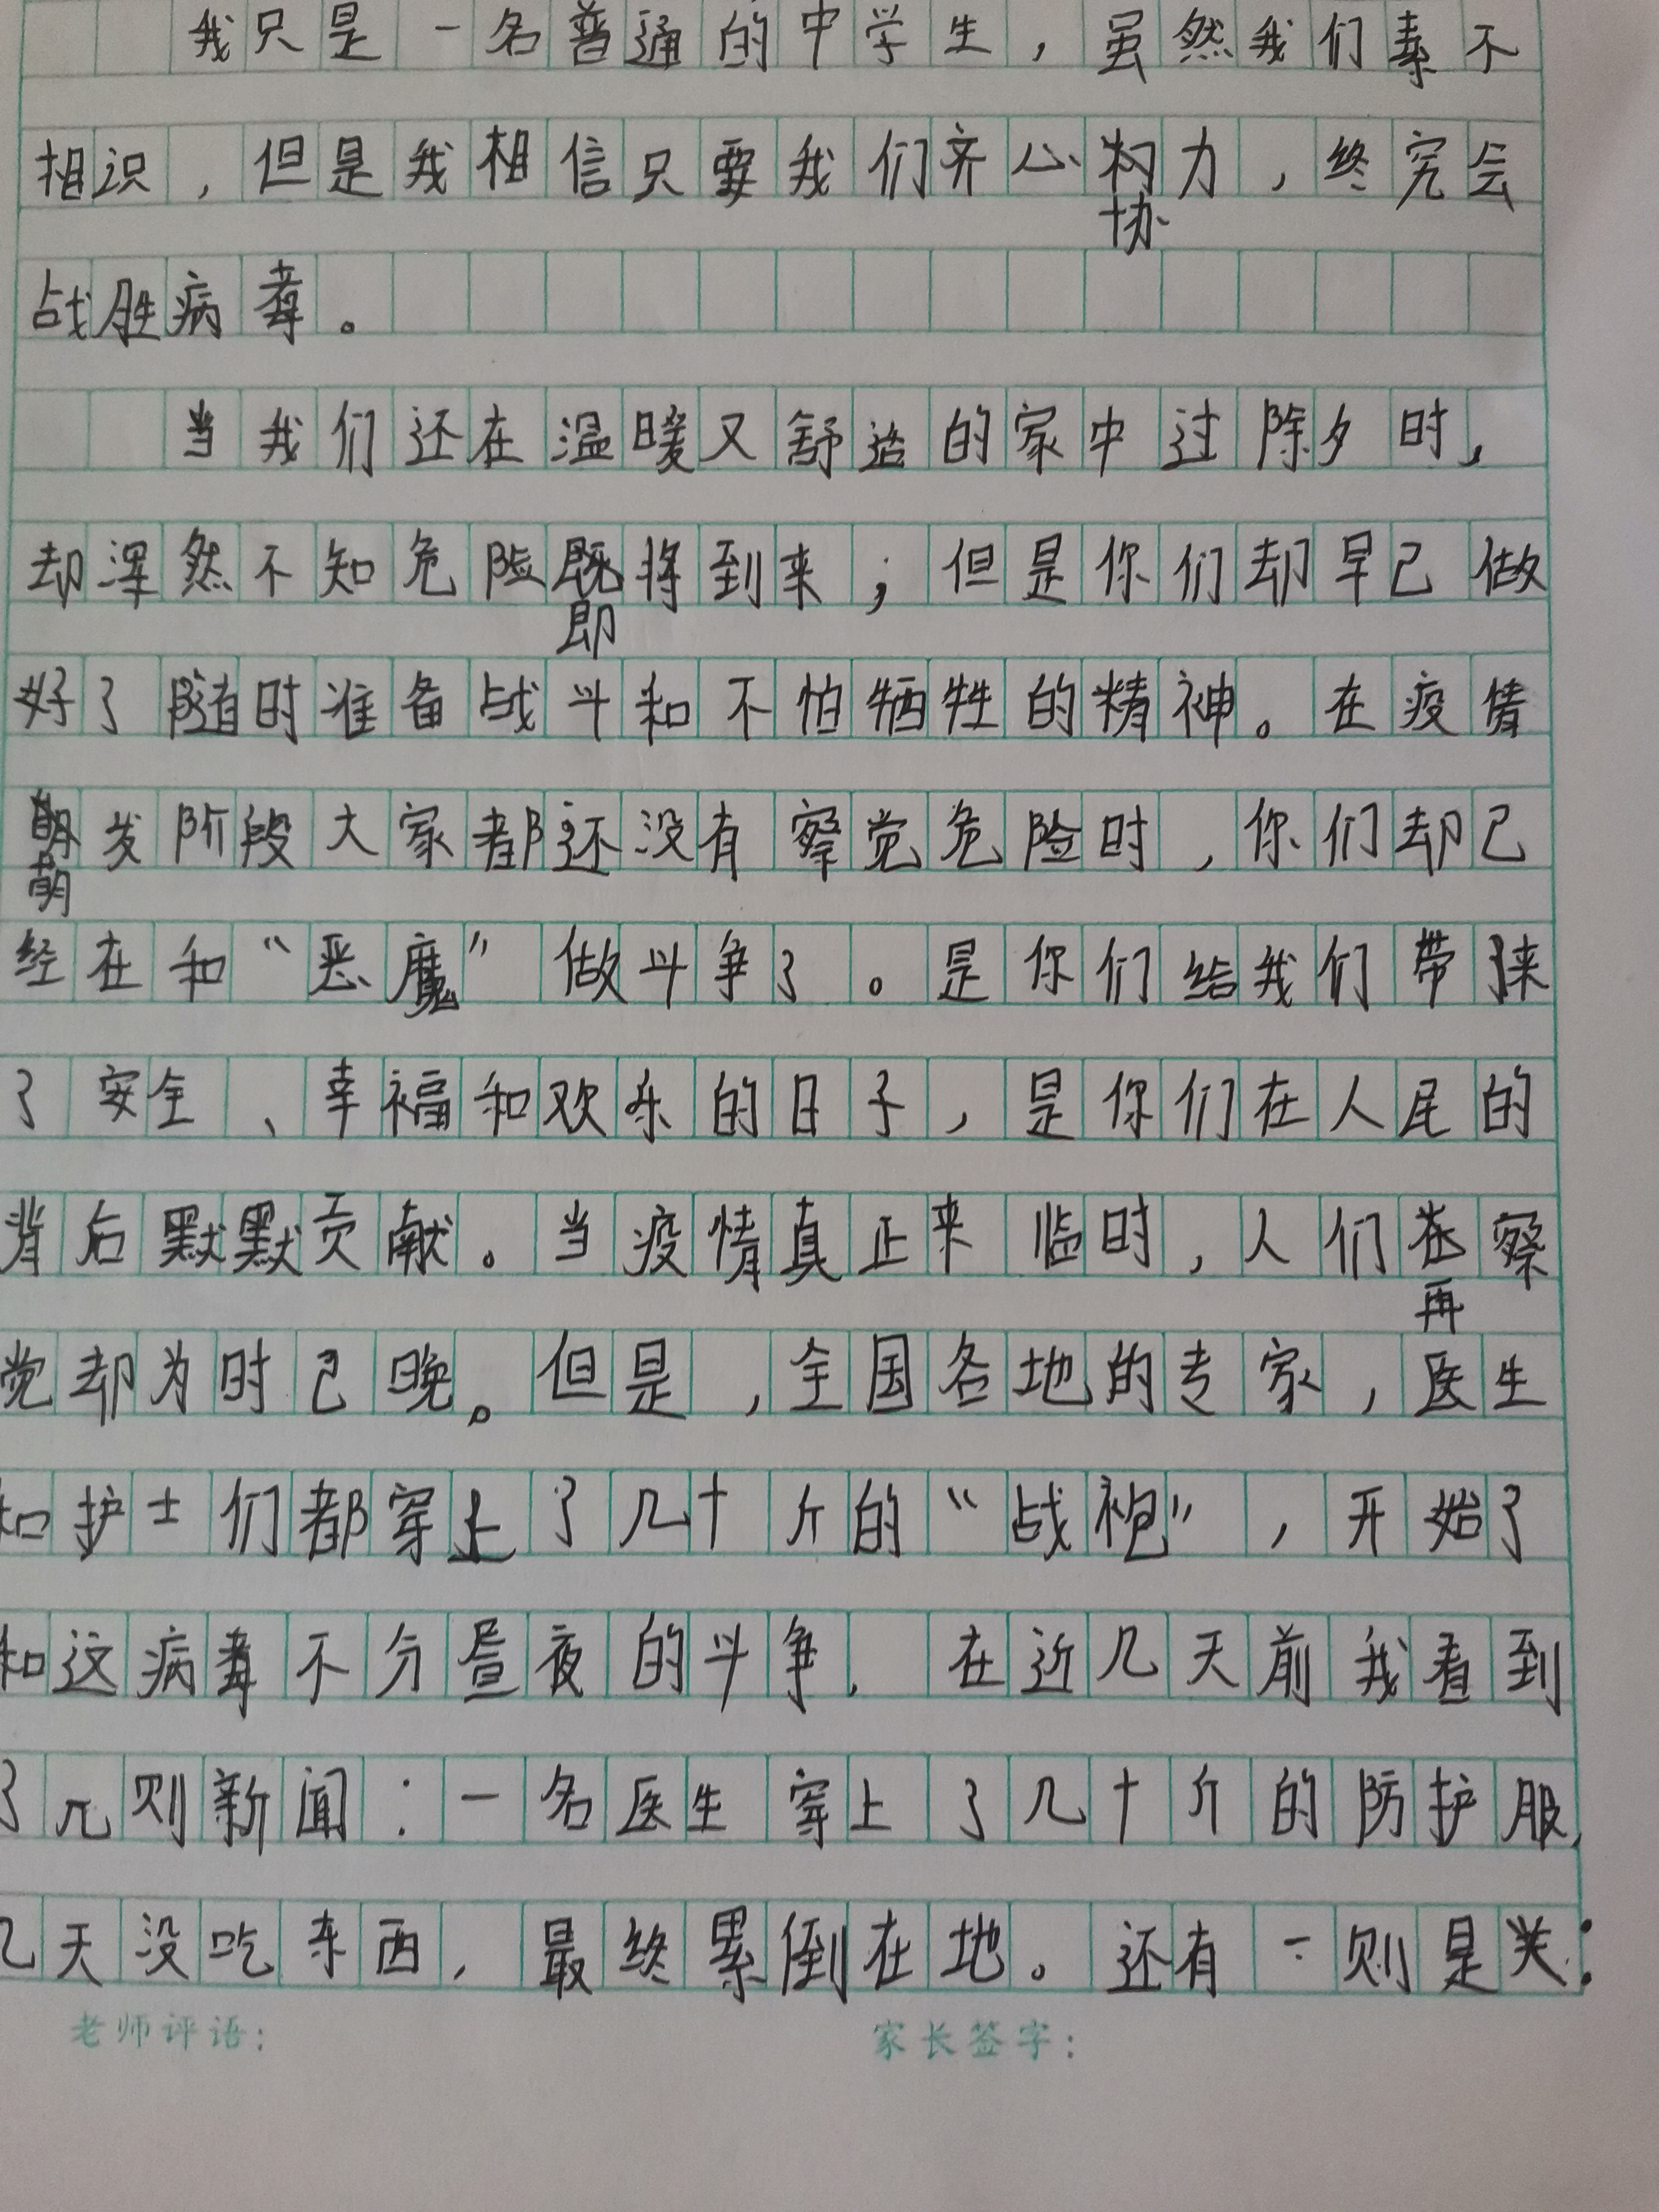 我只是一名普通的中学生，虽然我们素不
相识，但是我相信只要我们齐心协力，终究会
战胜病毒。
当我们还在温暖又舒适的家中过除夕时，
却浑然不知危险即将到来；但是你们却早已做
好了随时准备战斗和不怕牺牲的精神。在疫情
萌发阶段大家都还没有察觉危险时，你们却已
经在和“恶魔”做斗争了。是你们给我们带来
了安全、幸福和欢乐的日子，是你们在人民的
背后默默贡献。当疫情真正来临时，人们再察
觉却为时已晚。但是，全国各地的专家，医生
和护士们都穿上了几十斤的“战袍”，开始了
和这病毒不分昼夜的斗争，在近几天前我看到
了几则新闻：一名医生穿上了几十斤的防护服，
几天没吃东西，最终累倒在地。还有一则是关：
老师评语： 家长签字：